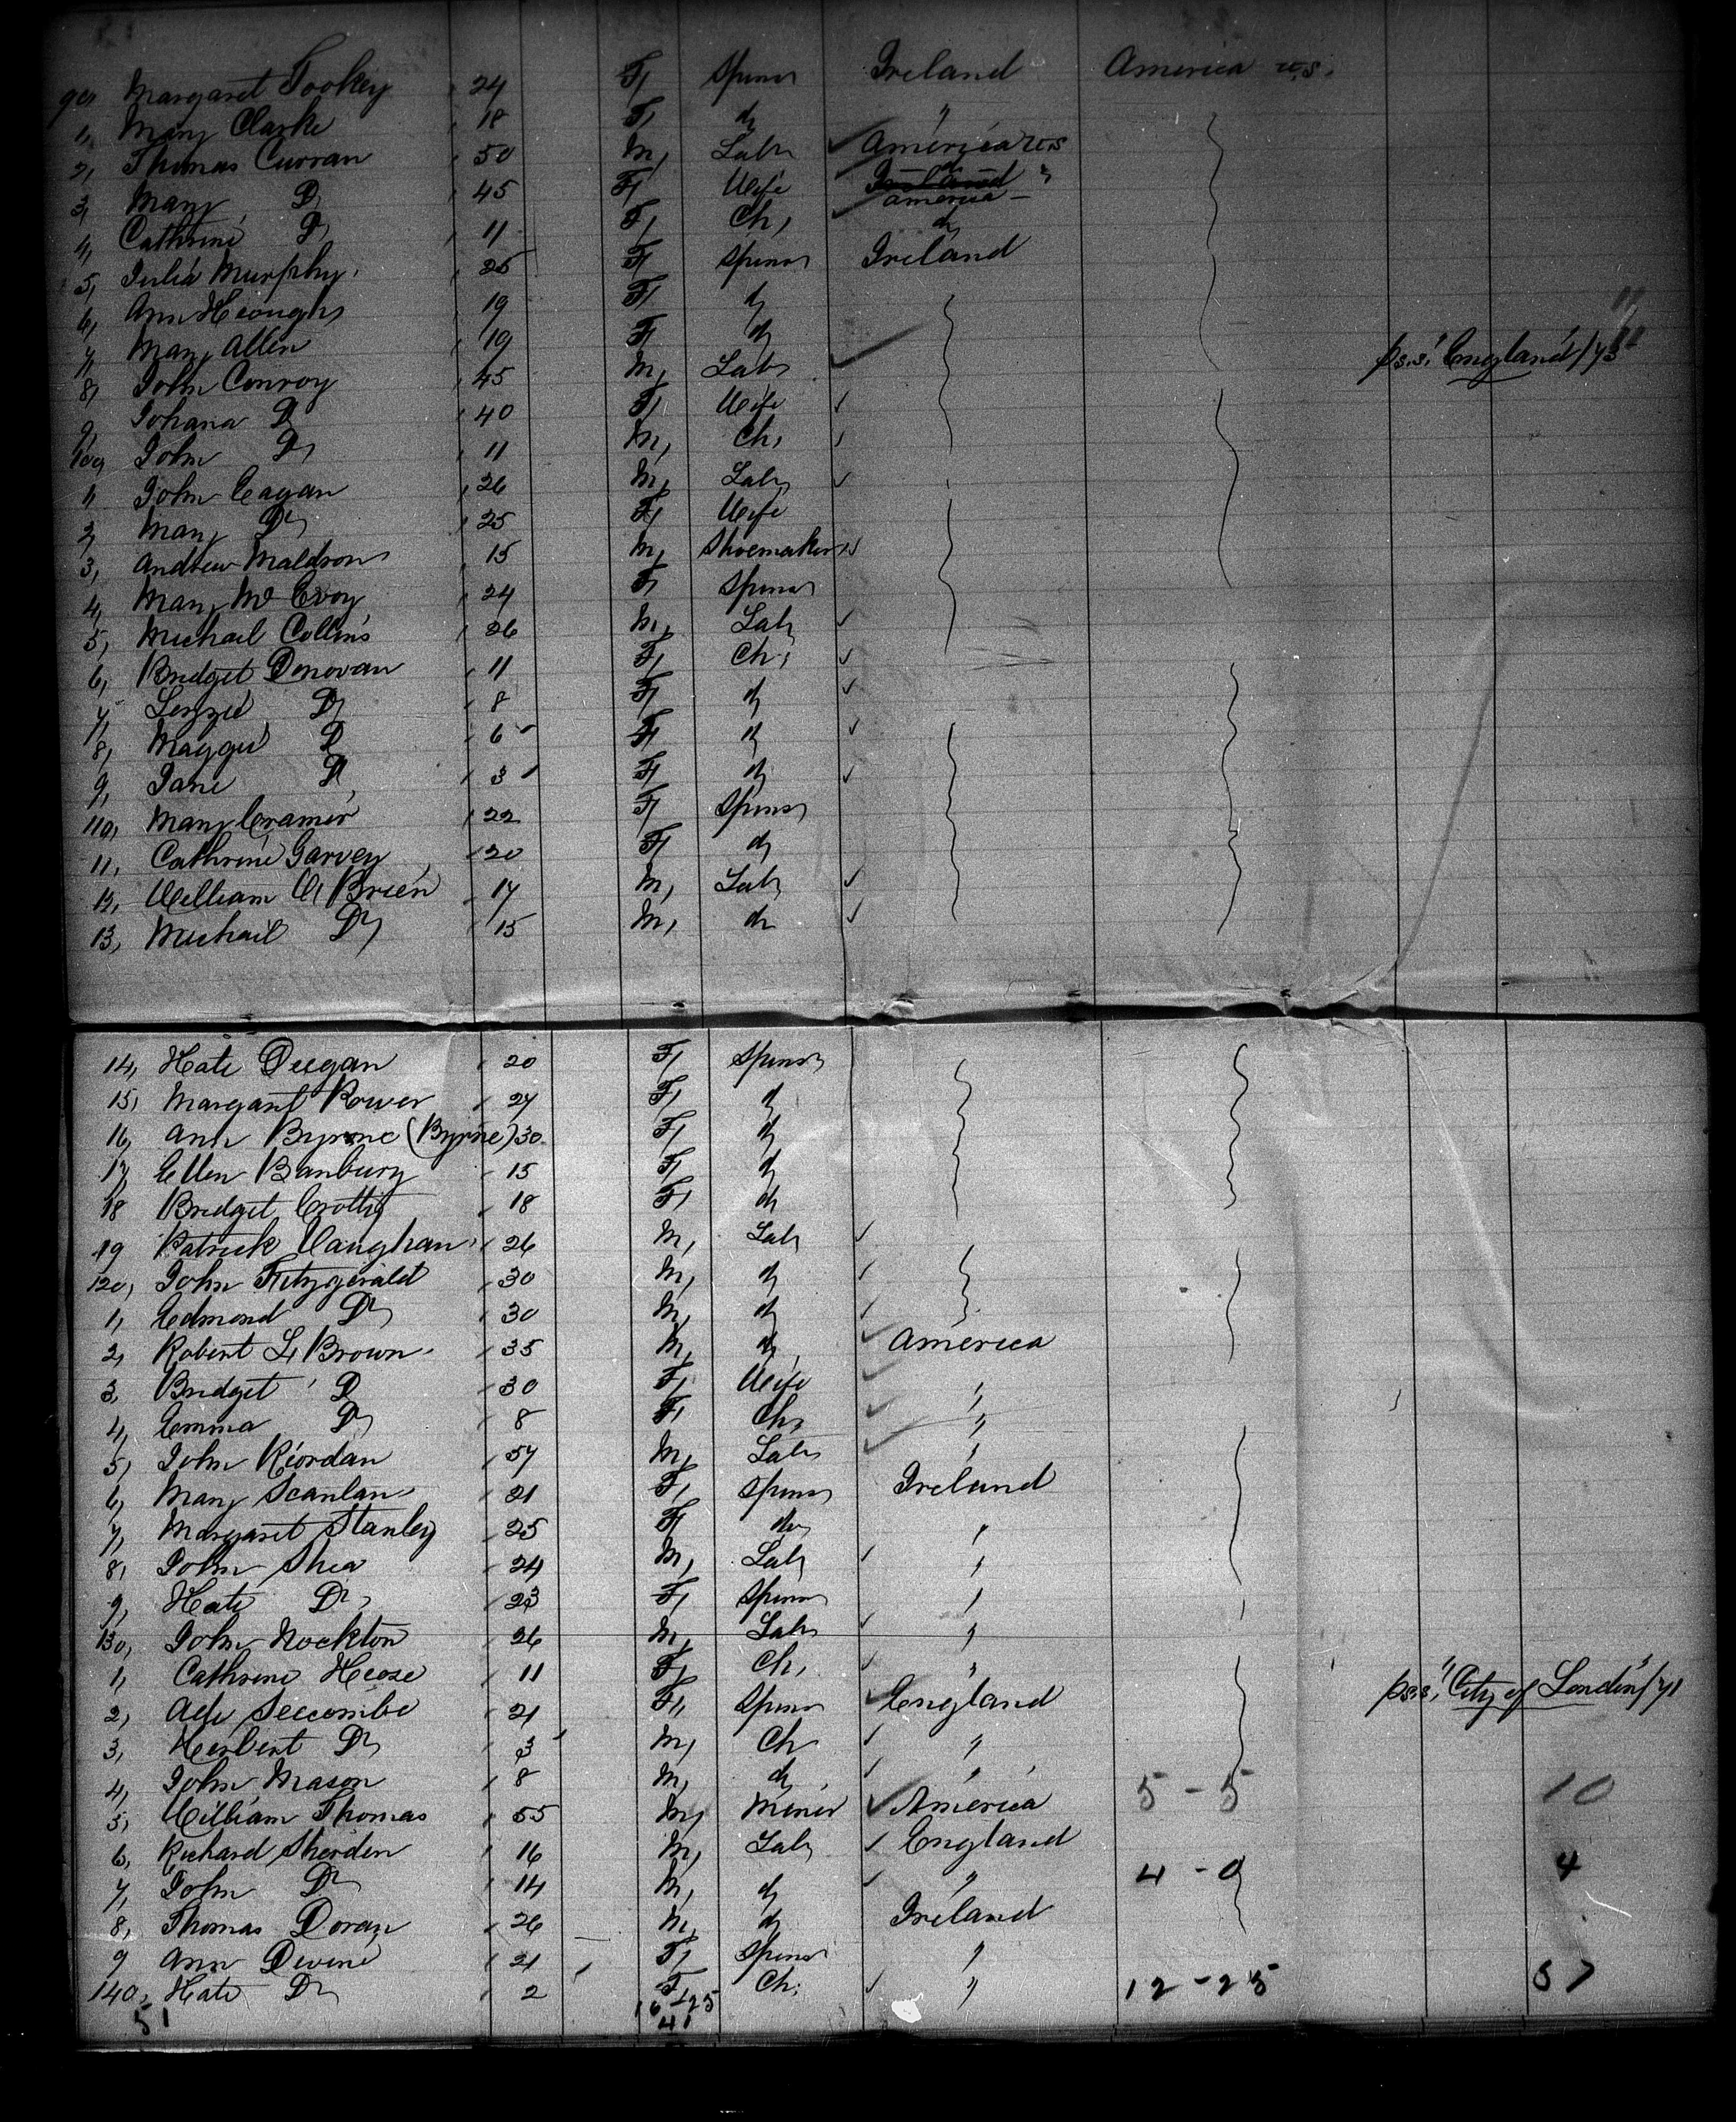 90, Margaret Tookey 24 F, Spinsr Ireland America U.S.
1, Mary Clarke 18 F, do "
2, Thomas Curran 50 M, Labr America U.S.
3, Mary Do 45 F, Wife America
4, Cathrine Do 11 F, Ch, do
5, Julia Murphy 25 F, Spinsr Ireland
6, Ann Keough 19 F, do
7, Mary Allen 19 F, do
8, John Conroy 45 M, Labr p.s.s. "England" /73
9, Johana Do 40 F, Wife
100, John Do 11 M, Ch,
1, John Eagan 26 M, Labr
2, Mary Do 25 F, Wife
3, Andrew Maldron 15 M, Shoemaker
4, Mary McEvoy 24 F, Spinsr
5, Michail Collins 26 M, Labr
6, Bridget Donovan 11 F, Ch,
7, Lizzie Do 8 F, do
8, Maggie Do 6 F, do
9, Jane Do 3 F, do
110, Mary Cramer 22 F, Spinsr
11, Cathrine Garvey 20 F, do
12, William O'Brien 17 M, Labr
13, Michail Do 15 M, do
14, Kate Deegan 20 F, Spinsr
15, Margaret Power 27 F, do
16, Ann Byrne (Byrne) 30 F, do
17, Ellen Banbury 15 F, do
18 Bridget Crotty 18 F, do
19 Patrick Vaughan 26 M, Labr
120, John Fitzgerald 30 M, do
1, Edmond Do 30 M, do
2, Robert L, Brown 35 M, do America
3, Bridget Do 30 F, Wife "
4, Emma Do 8 F, Ch, "
5, John Riordan 57 M, Labr "
6, Mary Scanlan 21 F, Spinsr Ireland
7, Margaret Stanley 25 F, do "
8, John Shea 24 M, Labr "
9, Kate Do 23 F, Spinsr "
130, John Nockton 26 M, Labr "
1, Cathrine 11 F, Ch, "
2, Ade Seccombe 21 F, Spinsr England p.s.s. "City of London" /71
3, Herbert Do 3 M, Ch "
4, John Mason 8 M, do "
5, William Thomas 55 M, Miner America 5 - 5 10
6, Richard Sherden 16 M, Labr England
7, John Do 14 M, do " 4 - 0 4
8, Thomas Doran 26 M, do Ireland
9 Ann Devine 21 F, Spinsr "
140, Kate Do 2 F, Ch, " 12 - 25 37
51 16-25
41